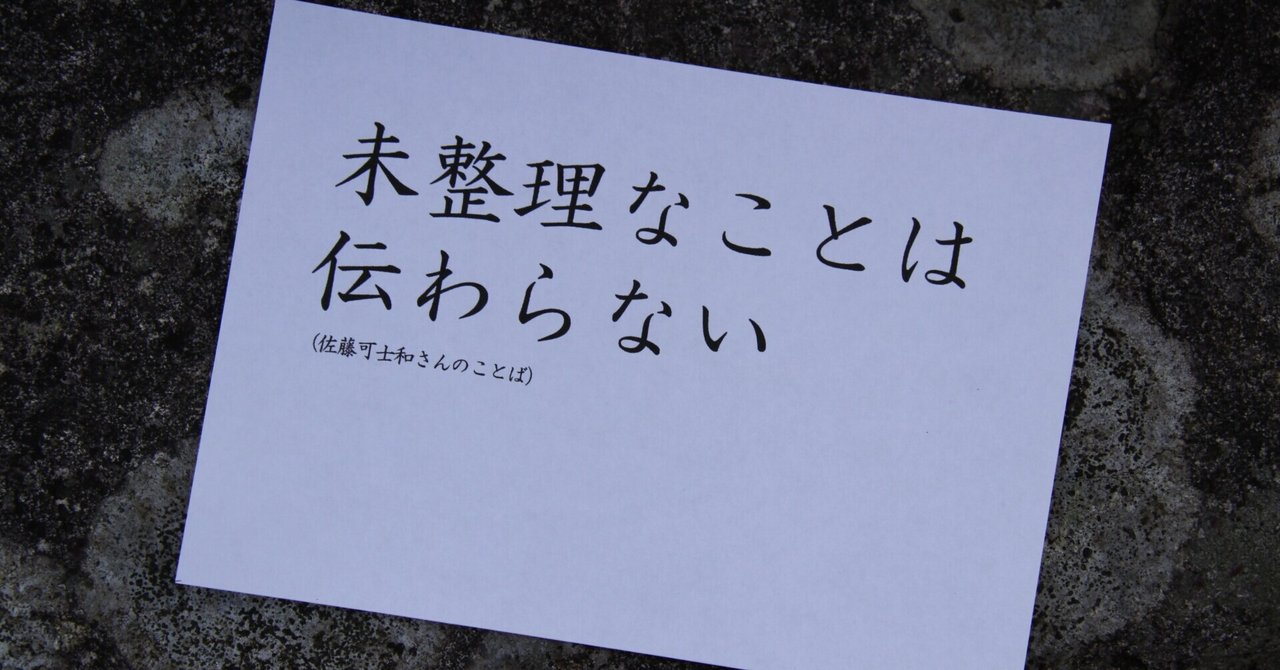 未整理なことは
伝わらない
(佐藤可士和さんのことば)